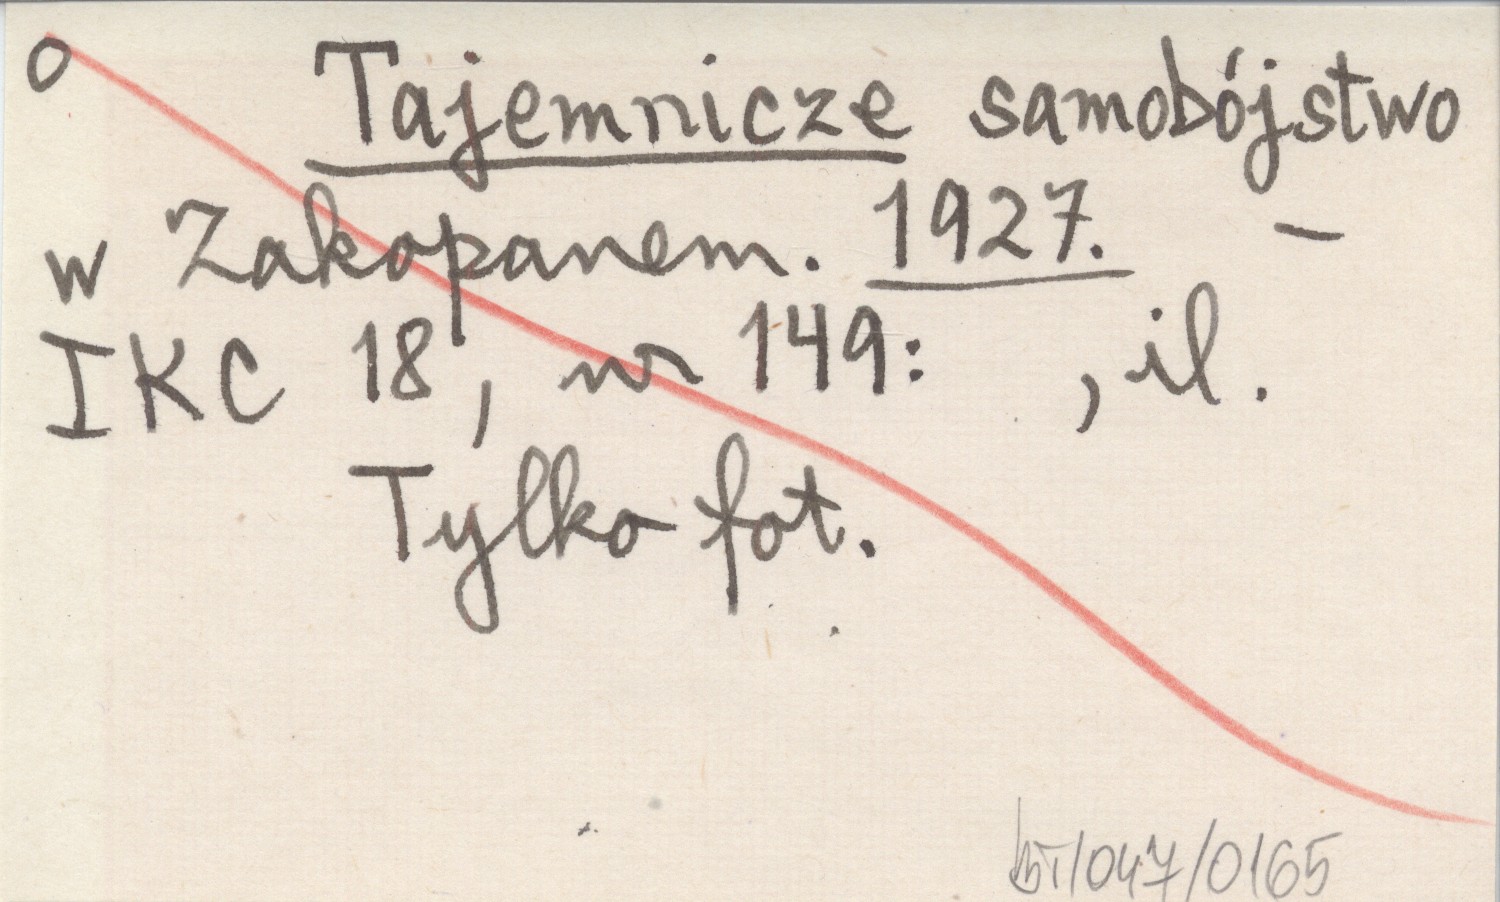 o Tajemnicze samobójstwo
w Zakopanem. 1927. –
IKC 18, nr 149: , il.
Tylko fot.
BT/047/0165